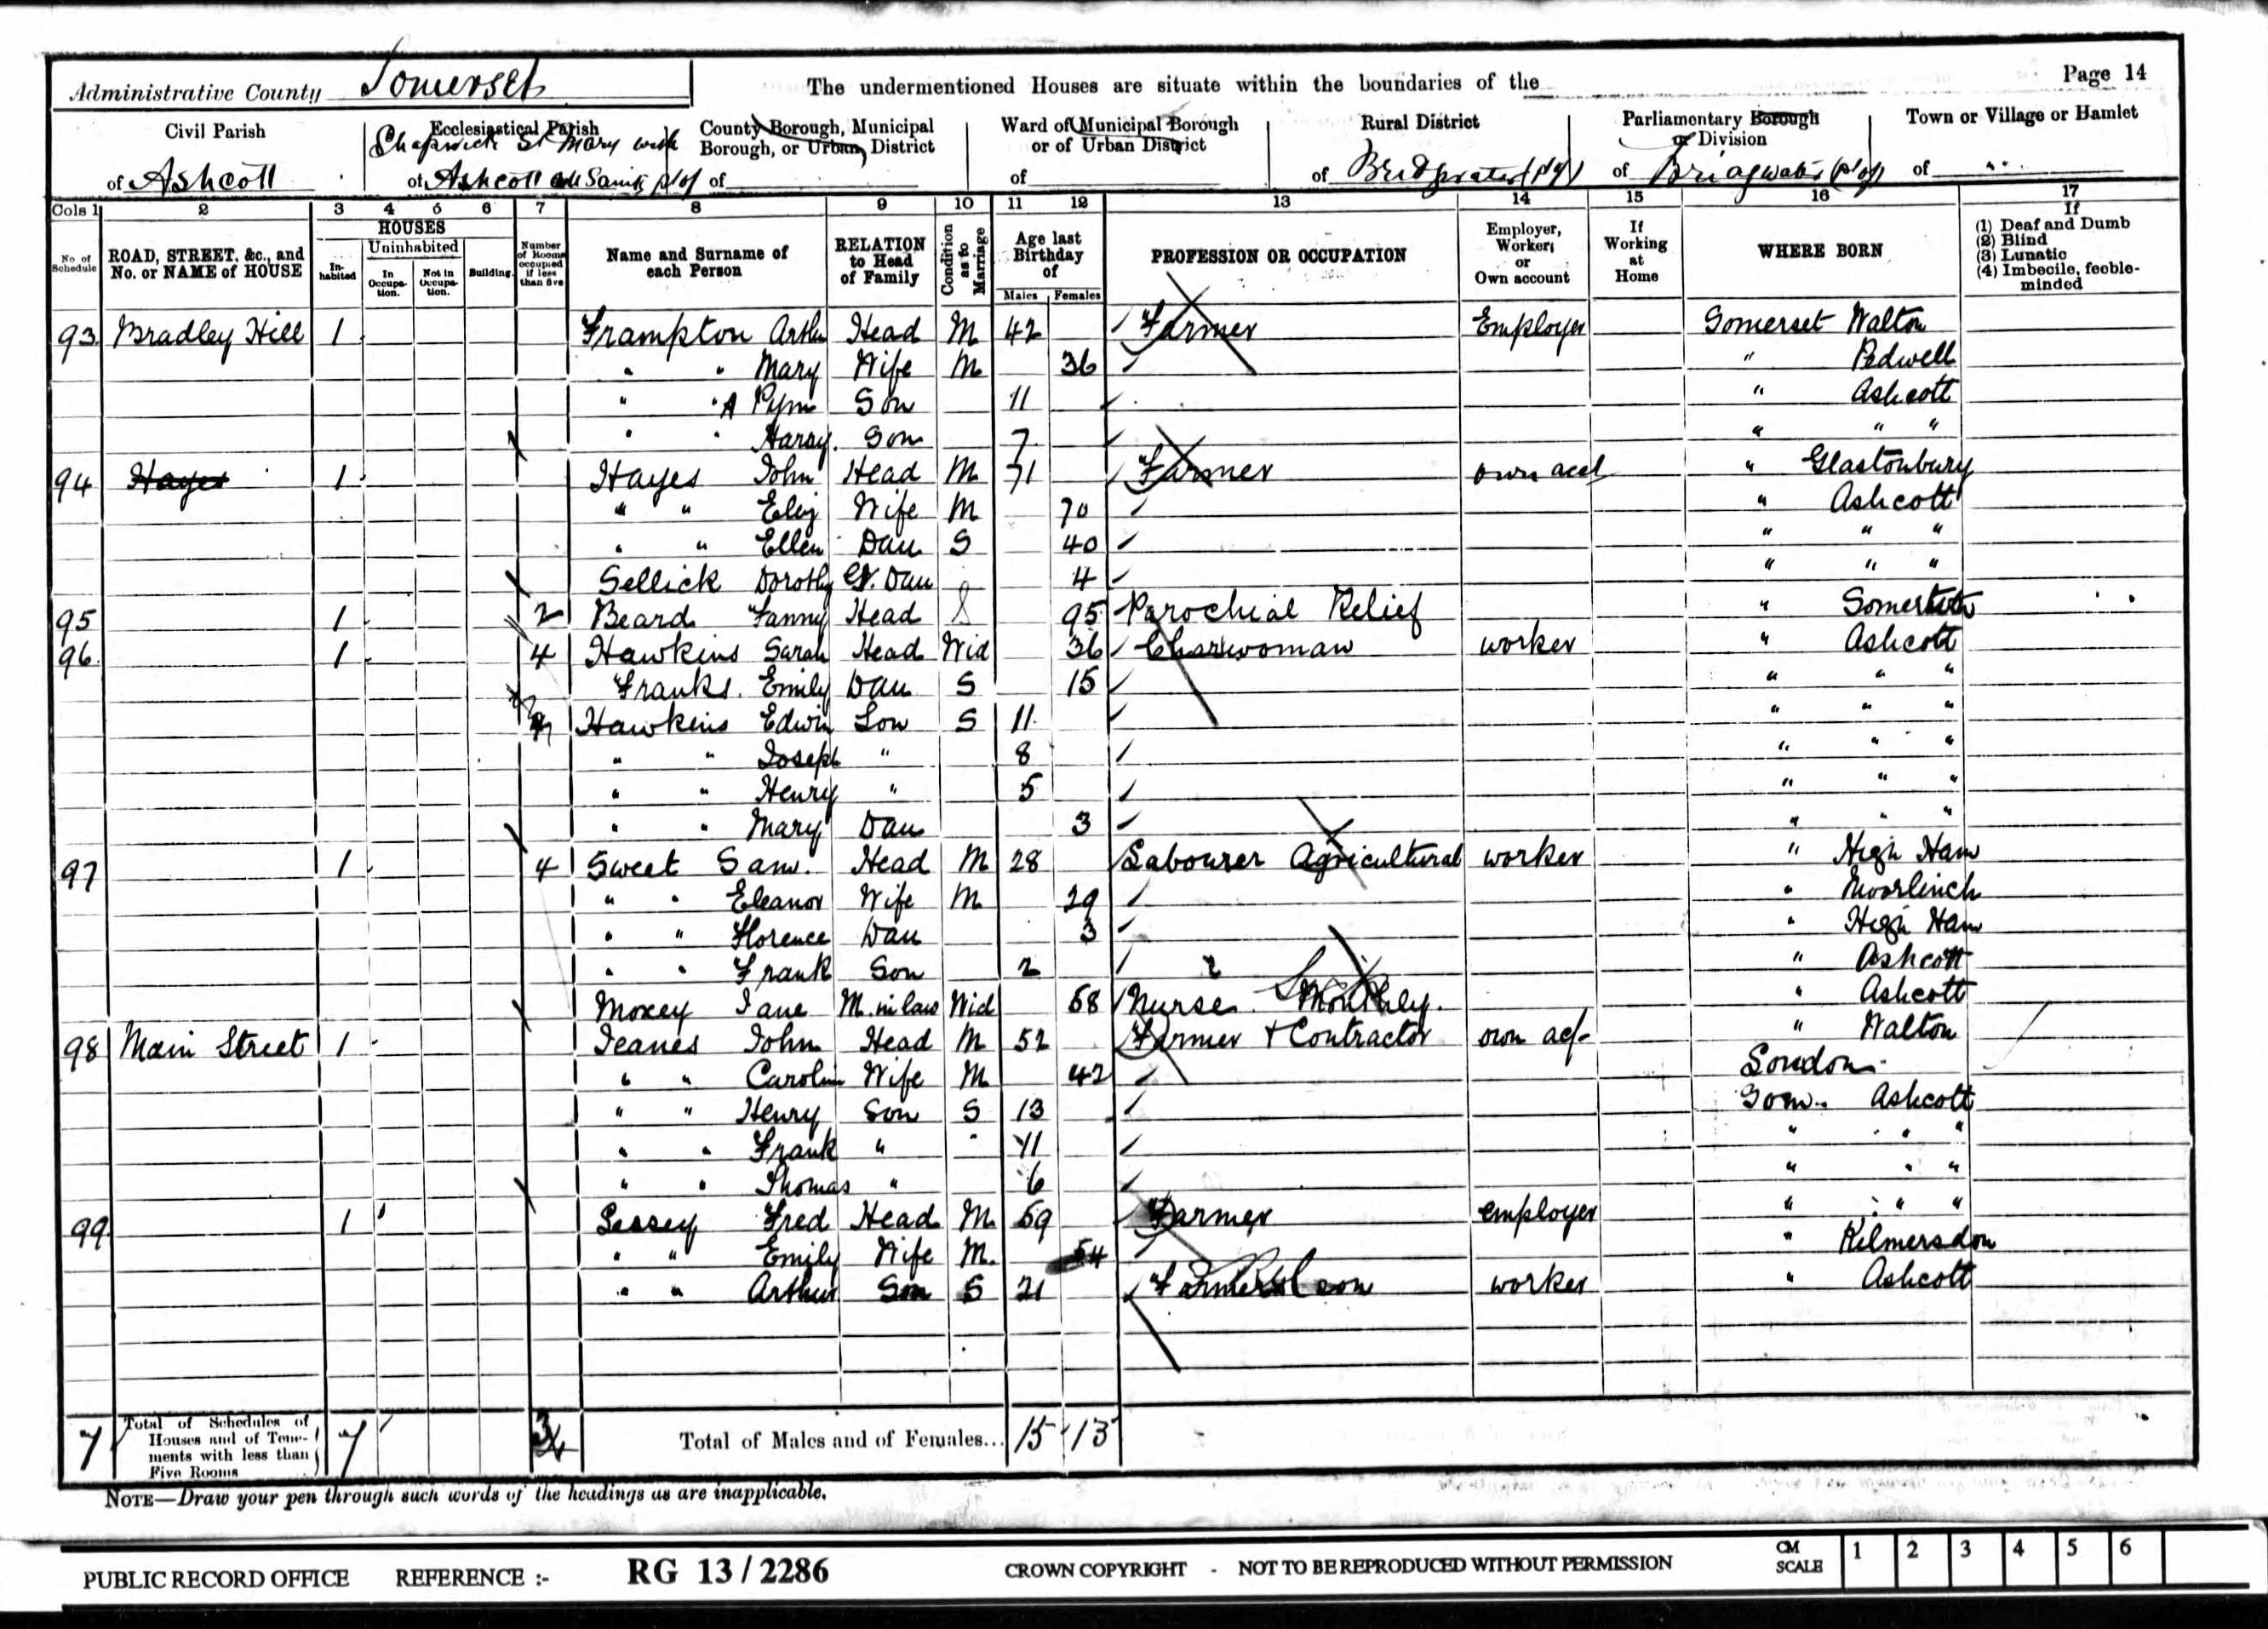 Administrative County Somerset The undermentioned Houses are situate within the boundaries of the Page 14
Civil Parish of Ashcott
Ecclesiastical Parish of Chapwick St Mary with Ashcott All Saints pt of
County Borough, Municipal Borough, or Urban District of
Ward of Municipal Borough or of Urban District of
Rural District of Bridgwater (pt of)
Parliamentary Borough or Division of Bridgwater (pt of)
Town or Village or Hamlet of
Cols 1 2 3 4 5 6 7 8 9 10 11 12 13 14 15 16 17
No of Schedule
ROAD, STREET, &c., and No. or NAME of HOUSE
HOUSES
Inhabited
Uninhabited
In Occupation.
Not in Occupation.
Building.
Number of Rooms occupied if less than five
Name and Surname of each Person
RELATION to Head of Family
Condition as to Marriage
Age last Birthday of
Males Females
PROFESSION OR OCCUPATION
Employer, Worker, or Own account
If Working at Home
WHERE BORN
If
(1) Deaf and Dumb
(2) Blind
(3) Lunatic
(4) Imbecile, feeble-minded
93 Bradley Hill 1 Frampton Arthu Head M 42 Farmer Employer Somerset Walton
" " Mary Wife M 36 " Pedwell
" " A Pym Son 11 " Ashcott
" " Harry Son 7 " " "
94 Hayes 1 Hayes John Head M 71 Farmer own acct " Glastonbury
" " Eliz Wife M 70 " Ashcott
" " Ellen Dau S 40 " " "
Sellick Dorothy Gr. Dau 4 " " "
95 1 2 Beard Fanny Head S 95 Parochial Relief " Somerton
96 1 4 Hawkins Sarah Head Wid 36 Charwoman worker " Ashcott
Franks. Emily Dau S 15 " " "
Hawkins Edwin Son S 11 " " "
" " Joseph " 8 " " "
" " Henry " 5 " " "
" " Mary Dau 3 " " "
97 1 4 Sweet Sam. Head M 28 Labourer Agricultural worker " High Ham
" " Eleanor Wife M 29 " Moorlinch
" " Florence Dau 3 " High Ham
" " Frank Son 2 " Ashcott
Moxey Jane M. in law Wid 58 Nurse Monthly. " Ashcott
98 Main Street 1 Jeanes John Head M 52 Farmer + Contractor own ac/- " Walton
" " Carolin Wife M 42 London
" " Henry Son S 13 Som. Ashcott
" " Frank " " 11 " " "
" " Thomas " 6 " " "
99 1 Fred Head M 59 Farmer employer " " "
" " Emily Wife M. 54 " Kilmersdon
" " Arthur Son S 21 Farmers son worker " Ashcott
7 Total of Schedules of Houses and of Tenements with less than Five Rooms 7 Total of Males and of Females... 15 13
NOTE—Draw your pen through such words of the headings as are inapplicable.
PUBLIC RECORD OFFICE REFERENCE :- RG 13 / 2286 CROWN COPYRIGHT - NOT TO BE REPRODUCED WITHOUT PERMISSION CM SCALE 1 2 3 4 5 6